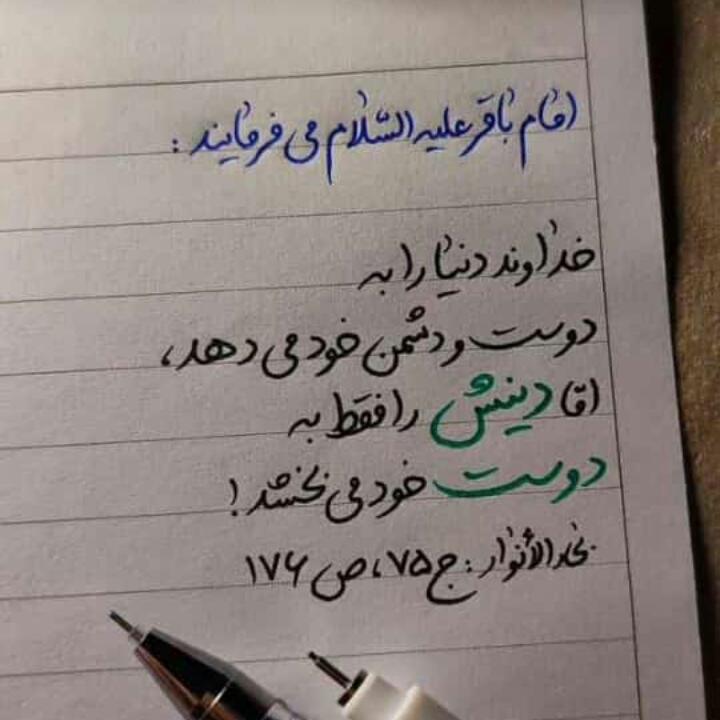 امام باقر علیه السّلام می فرمایند :
خداوند دنیا را به
دوست و دشمن خود می دهد،
امّا دینش را فقط به
دوست خود می بخشد !
بحارالأنوار : ج ۷۵، ص ۱۷۶